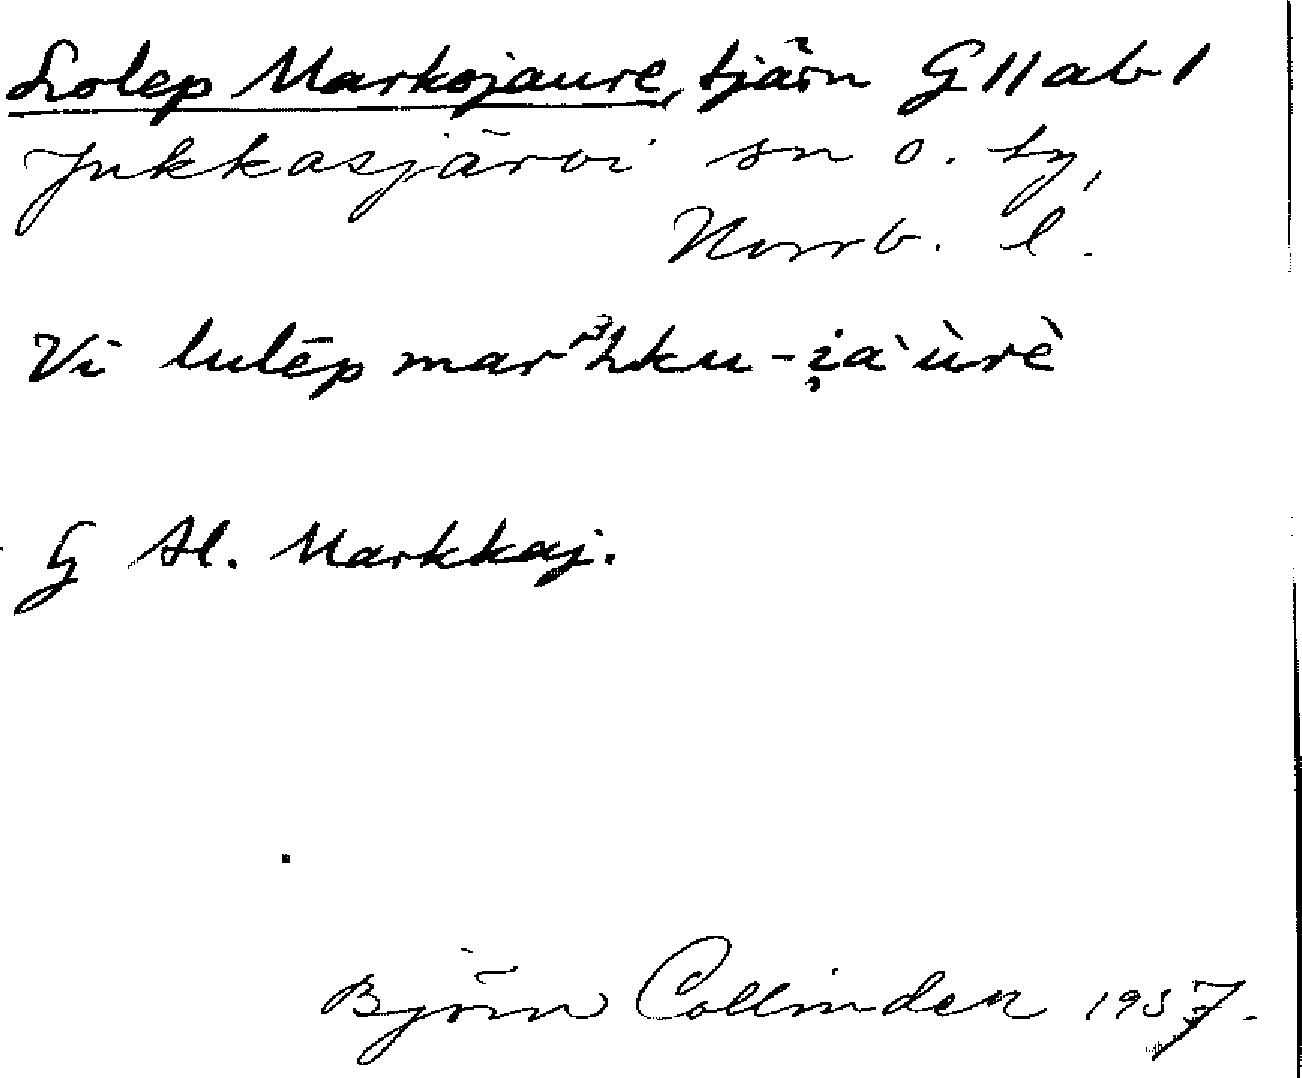 Lolep Markojaure, tjärn G 11 ab 1
Jukkasjärvi sn o. ty,
Norrb. l.
Vi lulēp
G Al. Markkaj.
Björn Collinder 1957.